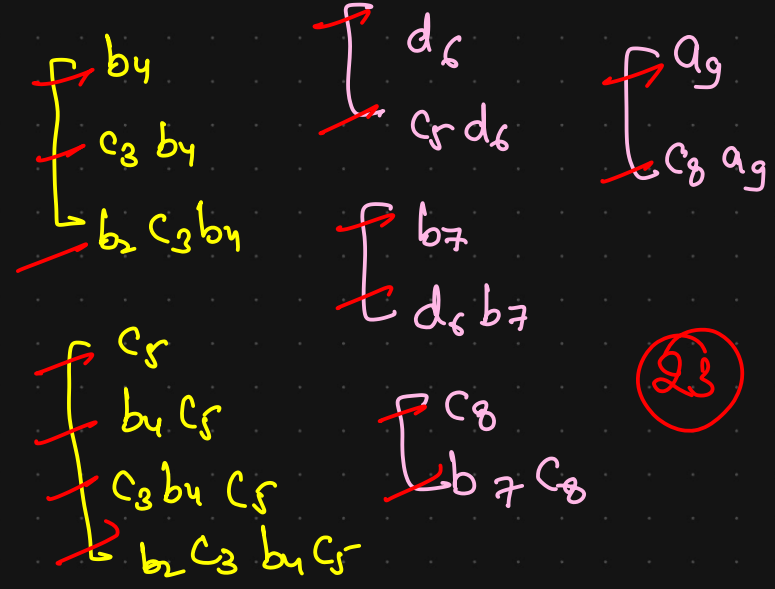 b4
c3 b4
b2 c3 b4
c5
b4 c5
c3 b4 c5
b2 c3 b4 c5
d6
c5 d6
b7
d6 b7
c8
b7 c8
a9
c8 a9
23